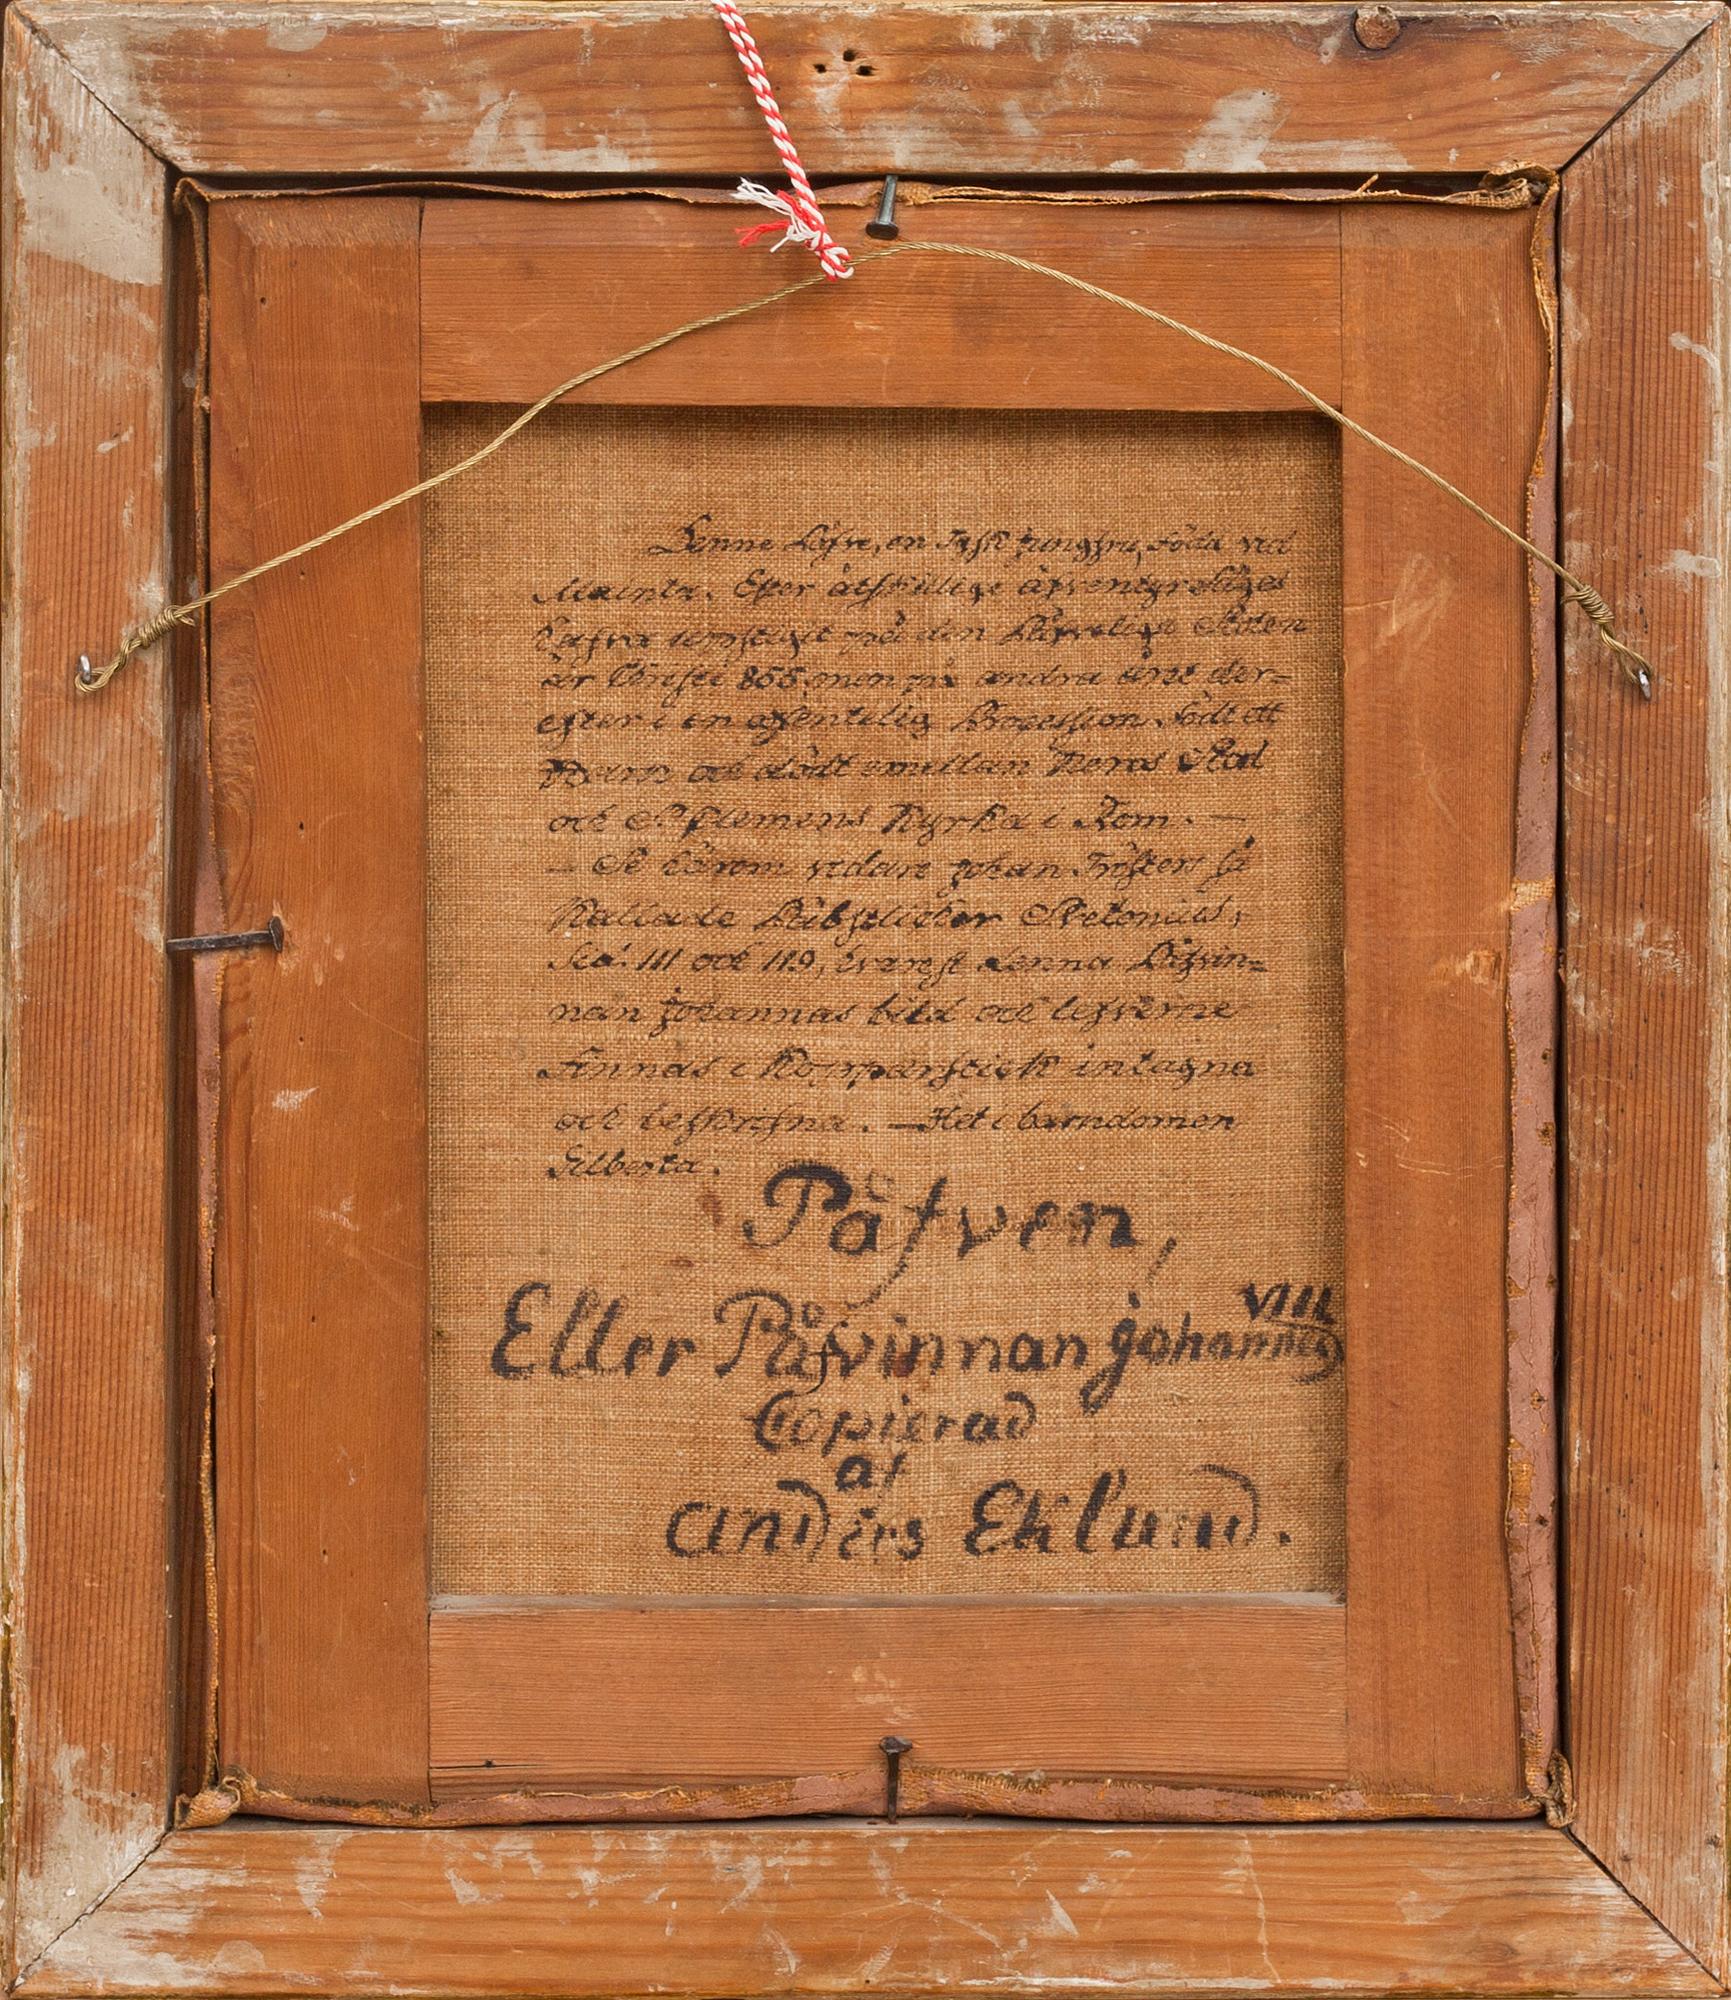 Denne Påfve, en Tysk jungfru, född vid
Maintz. Efter åtskillige äfventyr
den Påfvelige Stolen
år Christi 855, men på andra året der=
efter i en offentelig Procession, födt ett
Barn och dödt emillan Neros Stod
och St. Clemens Kyrka i Rom. —
— Se härom vidare Johan
kallade Pabst
Sid. 111 och 119, hvarest denna Påfvin=
nan Johannas bild och lefverne
finnas i Kopparstick intagna
och beskrifna. — Het i barndomen
Gilberta.
Påfven,
Eller Påfvinnan Johannes VIII
Copierad
af
Anders Eklund.